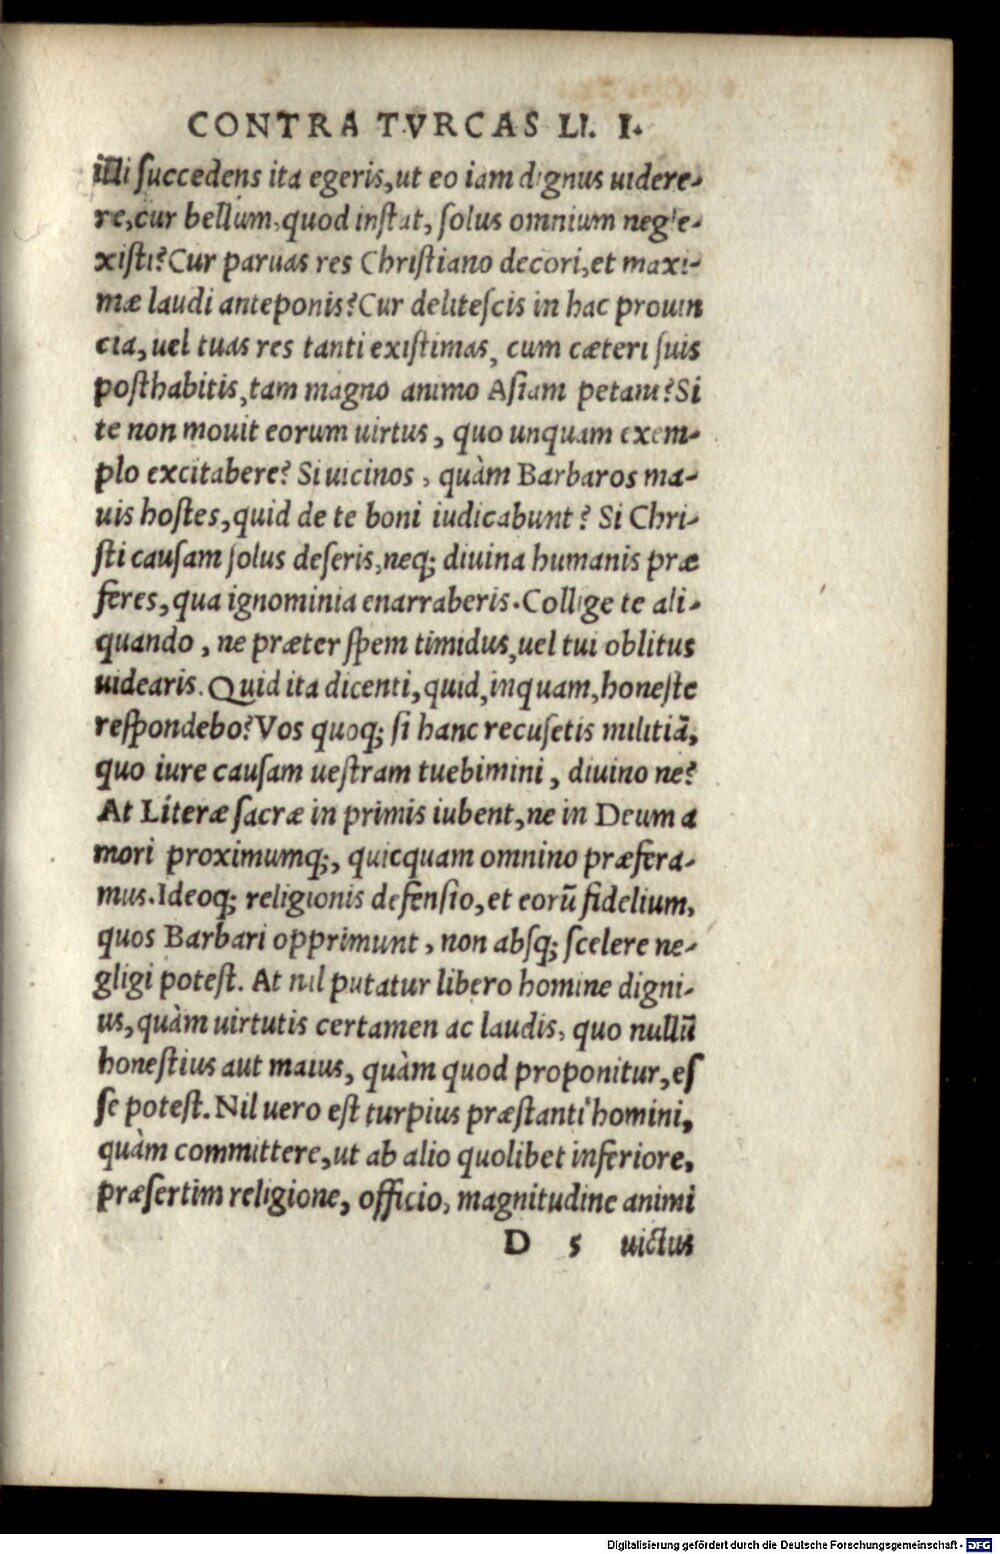 CONTRA TVRCAS LI. I.
illi succedens ita egeris, ut eo iam dignus uidere-
re, cur bellum, quod instat, solus omnium negle-
xisti? Cur paruas res Christiano decori, et maxi-
mæ laudi anteponis? Cur delitescis in hac prouin
cia, uel tuas res tanti existimas, cum cæteri suis
posthabitis, tam magno animo Asiam petant? Si
te non mouit eorum uirtus, quo unquam exem-
plo excitabere? Si uicinos, quàm Barbaros ma-
uis hostes, quid de te boni iudicabunt? Si Chri-
sti causam solus deseris, neq; diuina humanis præ
feres, qua ignominia enarraberis. Collige te ali-
quando, ne præter spem timidus, uel tui oblitus
uidearis. Quid ita dicenti, quid, inquam, honeste
respondebo? Vos quoq; si hanc recusetis militiã,
quo iure causam uestram tuebimini, diuino ne?
At Literæ sacræ in primis iubent, ne in Deum a
mori proximumq;, quicquam omnino præfera-
mus. Ideoq; religionis defensio, et eorũ fidelium,
quos Barbari opprimunt, non absq; scelere ne-
gligi potest. At nil putatur libero homine digni-
us, quàm uirtutis certamen ac laudis, quo nullũ
honestius aut maius, quàm quod proponitur, es
se potest. Nil uero est turpius præstanti homini,
quàm committere, ut ab alio quolibet inferiore,
præsertim religione, officio, magnitudine animi
D 5 uictus
Digitalisierung gefördert durch die Deutsche Forschungsgemeinschaft - DFG